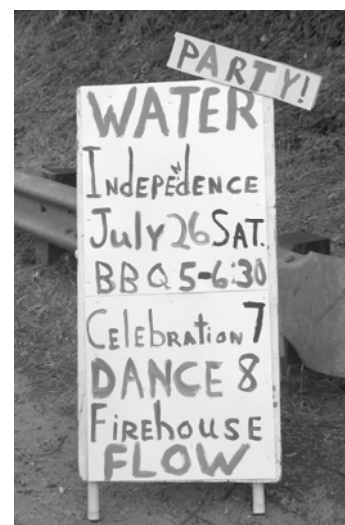 PARTY!
WATER
Indepedence
July 26 SAT.
BBQ 5-6:30
Celebration 7
DANCE 8
Firehouse
FLOW